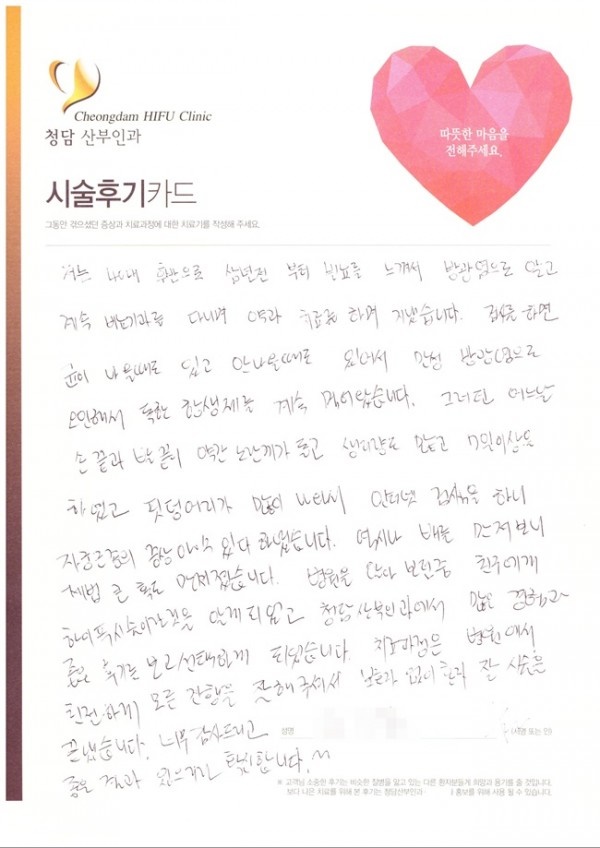 Cheongdam HIFU Clinic
청담 산부인과
따뜻한 마음을
전해주세요.
시술후기카드
그동안 겪으셨던 증상과 치료과정에 대한 치료기를 작성해 주세요.
저는 40대 후반으로 삼년전 부터 빈뇨를 느껴서 방광염으로 알고
계속 비뇨기과를 다니며 약과 치료를 하며 지냈습니다. 검사를 하면
균이 나올때도 있고 안나올때도 있어서 만성 방광염으로
오인해서 독한 항생제를 계속 먹어왔습니다. 그러던 어느날
손끝과 발끝이 약간 노란끼가 돌고 생리량도 많고 7일이상을
하였고 핏덩어리가 많이 나와서 인터넷 검색을 하니
자궁근종의 증상이 있다 하였습니다. 역시나 배를 만져보니
제법 큰 혹도 만져졌습니다. 병원을 알아보던중 친구에게
하이푸시술이라는것을 알게되었고 청담산부인과에서 많은 경험과
좋은 후기를 보고 선택하게 되었습니다. 치료과정은 병원에서
친절하게 모든 진행을 잘해주셔서 불편함 없이 잘 시술을
끝냈습니다. 너무 감사드리고
좋은 결과 있으리라 믿습니다.^^
성명
(서명 또는 인)
※ 고객님 소중한 후기는 비슷한 질병을 앓고 있는 다른 환자분들게 희망과 용기를 줄 것입니다.
보다 나은 치료를 위해 본 후기는 청담산부인과 홍보를 위해 사용 될 수 있습니다.